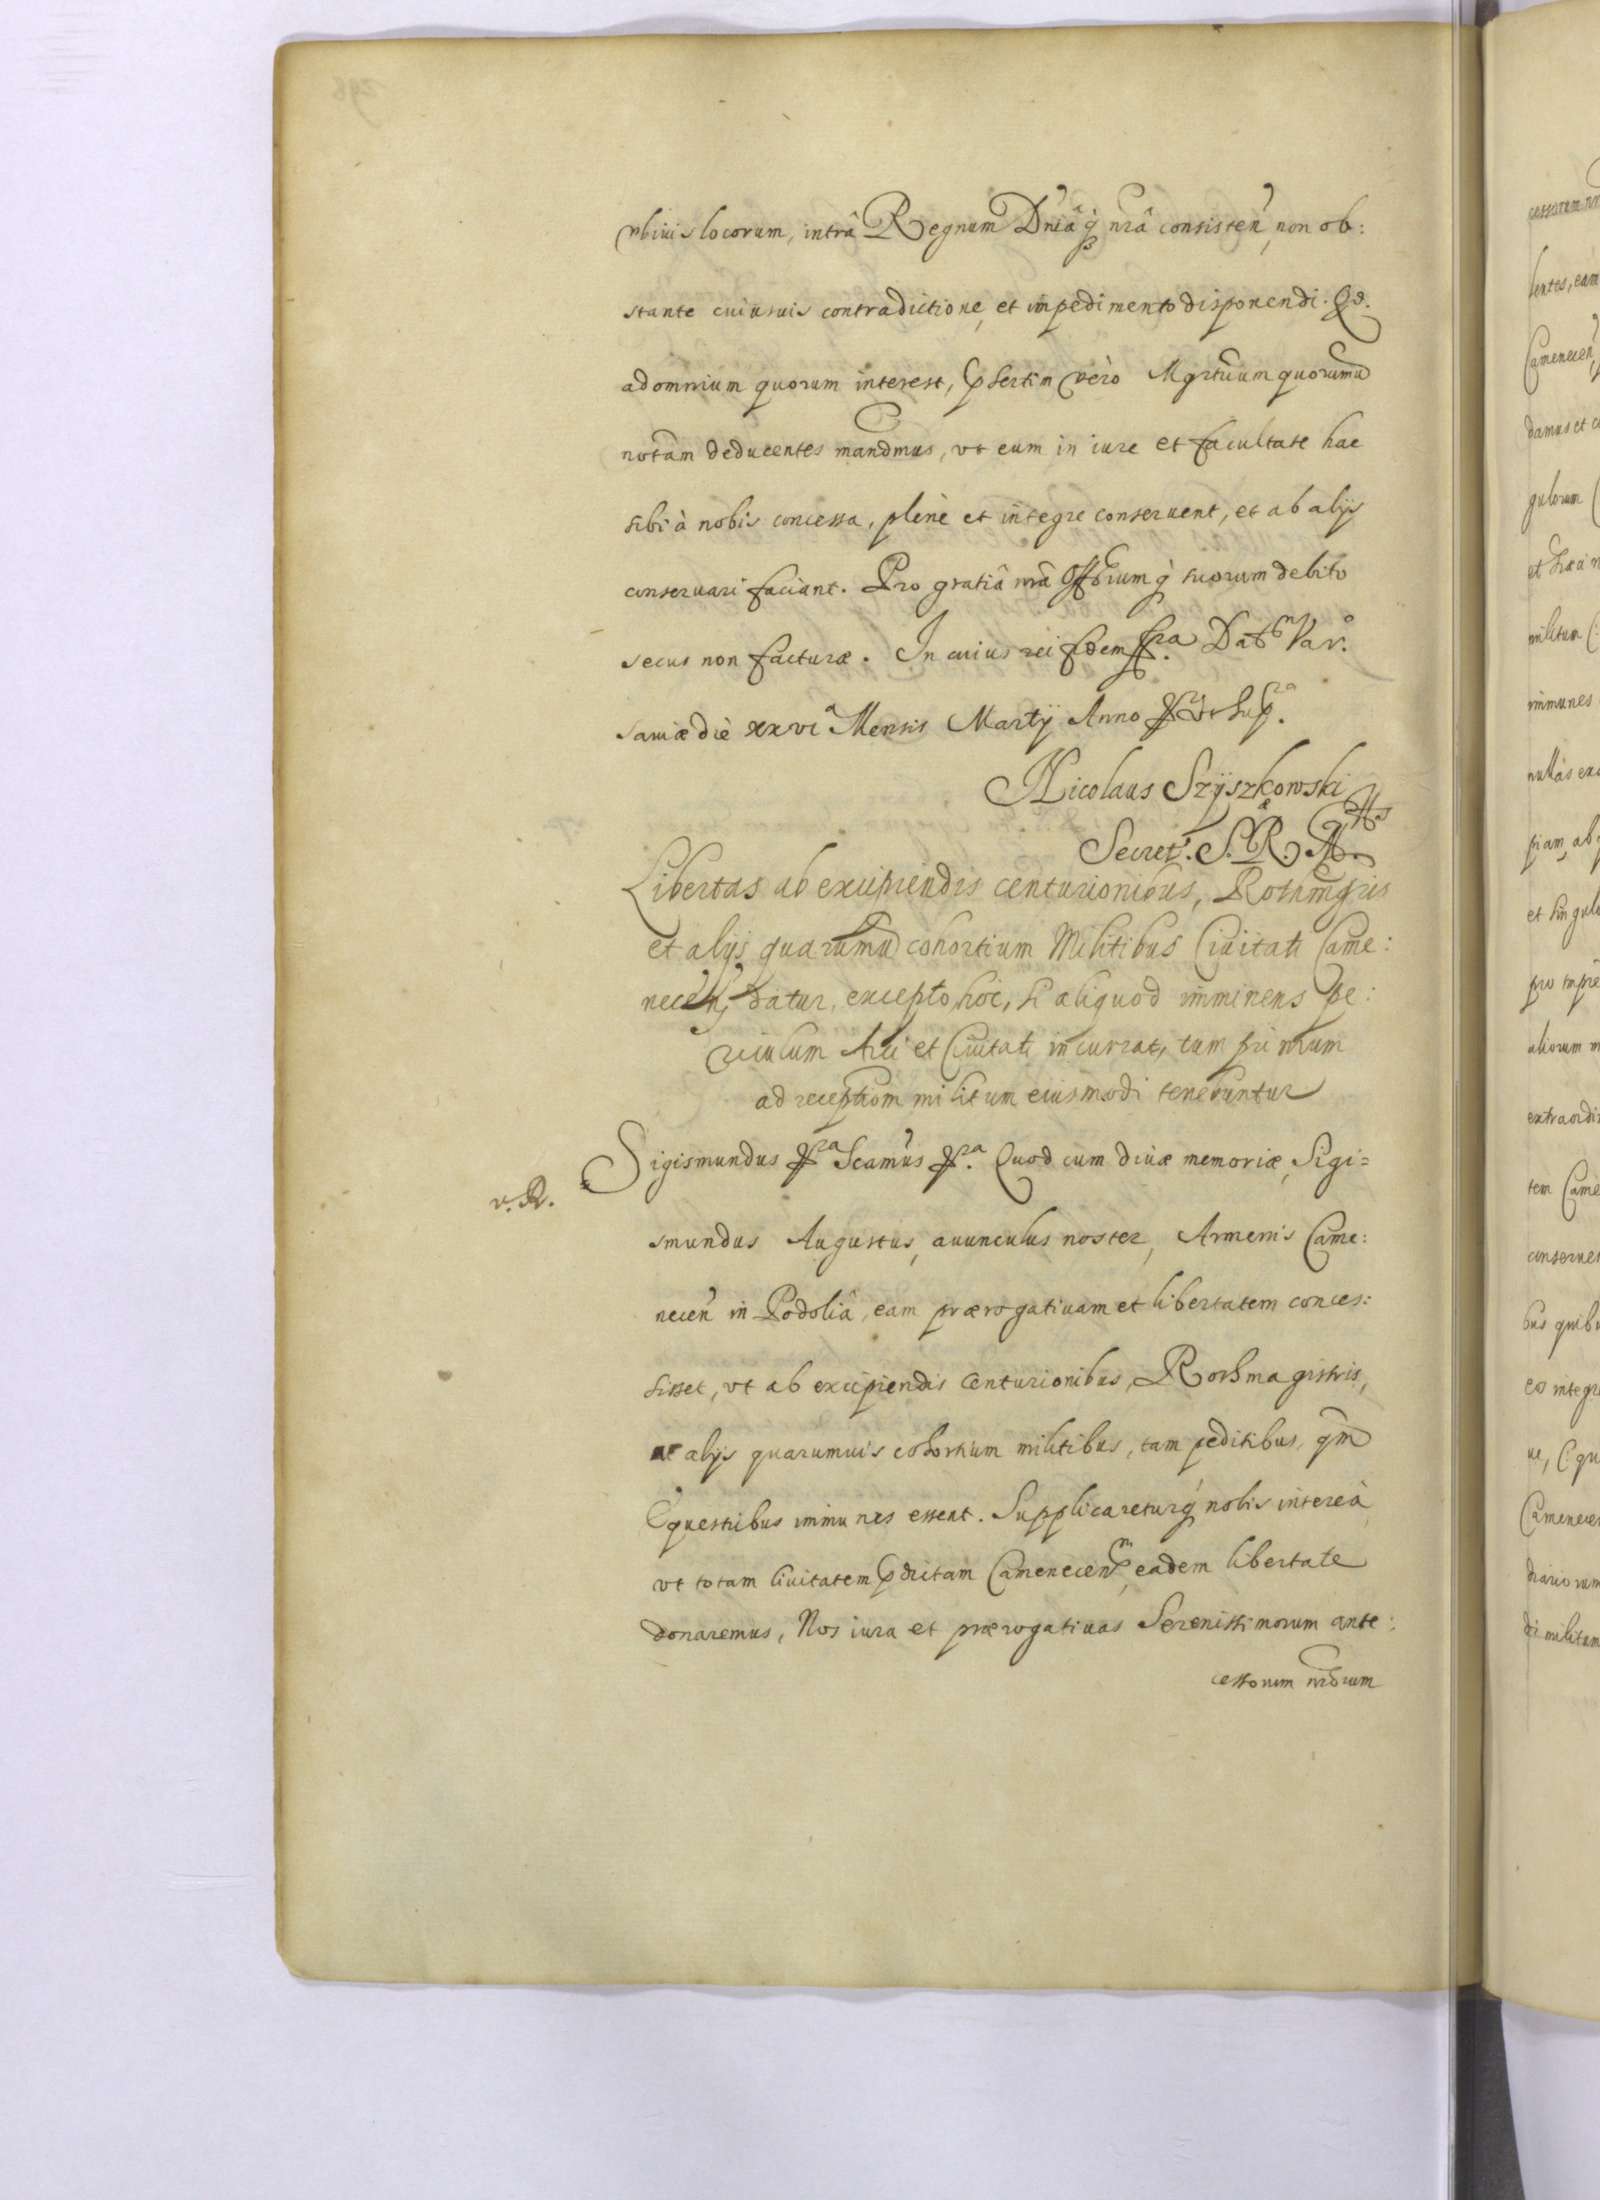 vbiuis locorum, intrâ Regnum Dniâq́ nrâ consisteñ, non ob:
stante cuiusuis contradictione, et impedimento disponendi. Qd.
ad omnium quorum interest, psertim verò Mgrtuum quorumuis
notam deducentes mandmus, vt eum in iure et facultate hac
sibi à nobis concessa, plenè et integre conseruent, et ab alijs
conseruari faciant. Pro gratiâ nrâ Offiorum q́ suorum debito
secus non facturæ. In cuius rei fidem Dat Var:
sauiæ die xxvi Mensis Martij Anno vt sup.
Nicolaus Szyszkowski
Secret. S. R. M.
Libertas ab excipiendis centurionibus, Rothmgris
et alijs quarumuis cohortium Militibus Ciuitati Came:
neceñ, datur, excepto hoc, si aliquod imminens pe:
riculum Arci et Ciuitati incurrat, tum primum
ad receptiom militum eiusmodi tenebuntur
Sigismundus Quod cum diuæ memoriæ, Sigi=
v. R.
smundus Augustus, auunculus noster, Armenis Came:
neceñ in Podoliâ, eam prærogatiuam et libertatem conces:
sisset, vt ab excipiendis Centurionibus, Rothmagistris,
ac alijs quarumuis cohortium militibus, tam peditibus, qm
Equestribus immunes essent. Supplicareturq́ nobis intereà,
vt totam Ciuitatem pdictam Cameneceñ, eadem libertate
donaremus, Nos iura et prærogatiuas Serenissimorum ante:
cessorum nrorum